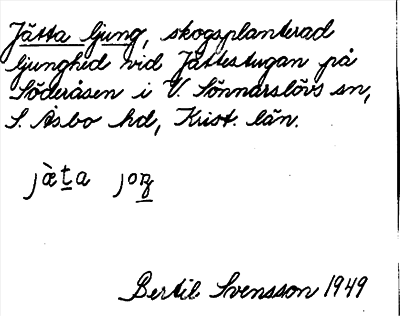 Jätta ljung, skogsplanterad
ljunghed vid Jättestugan på
Söderåsen i V. Sönnarslövs sn,
S. Åsbo hd, Krist. län.
jæ̀ta joŋ
Bertil Svensson 1949